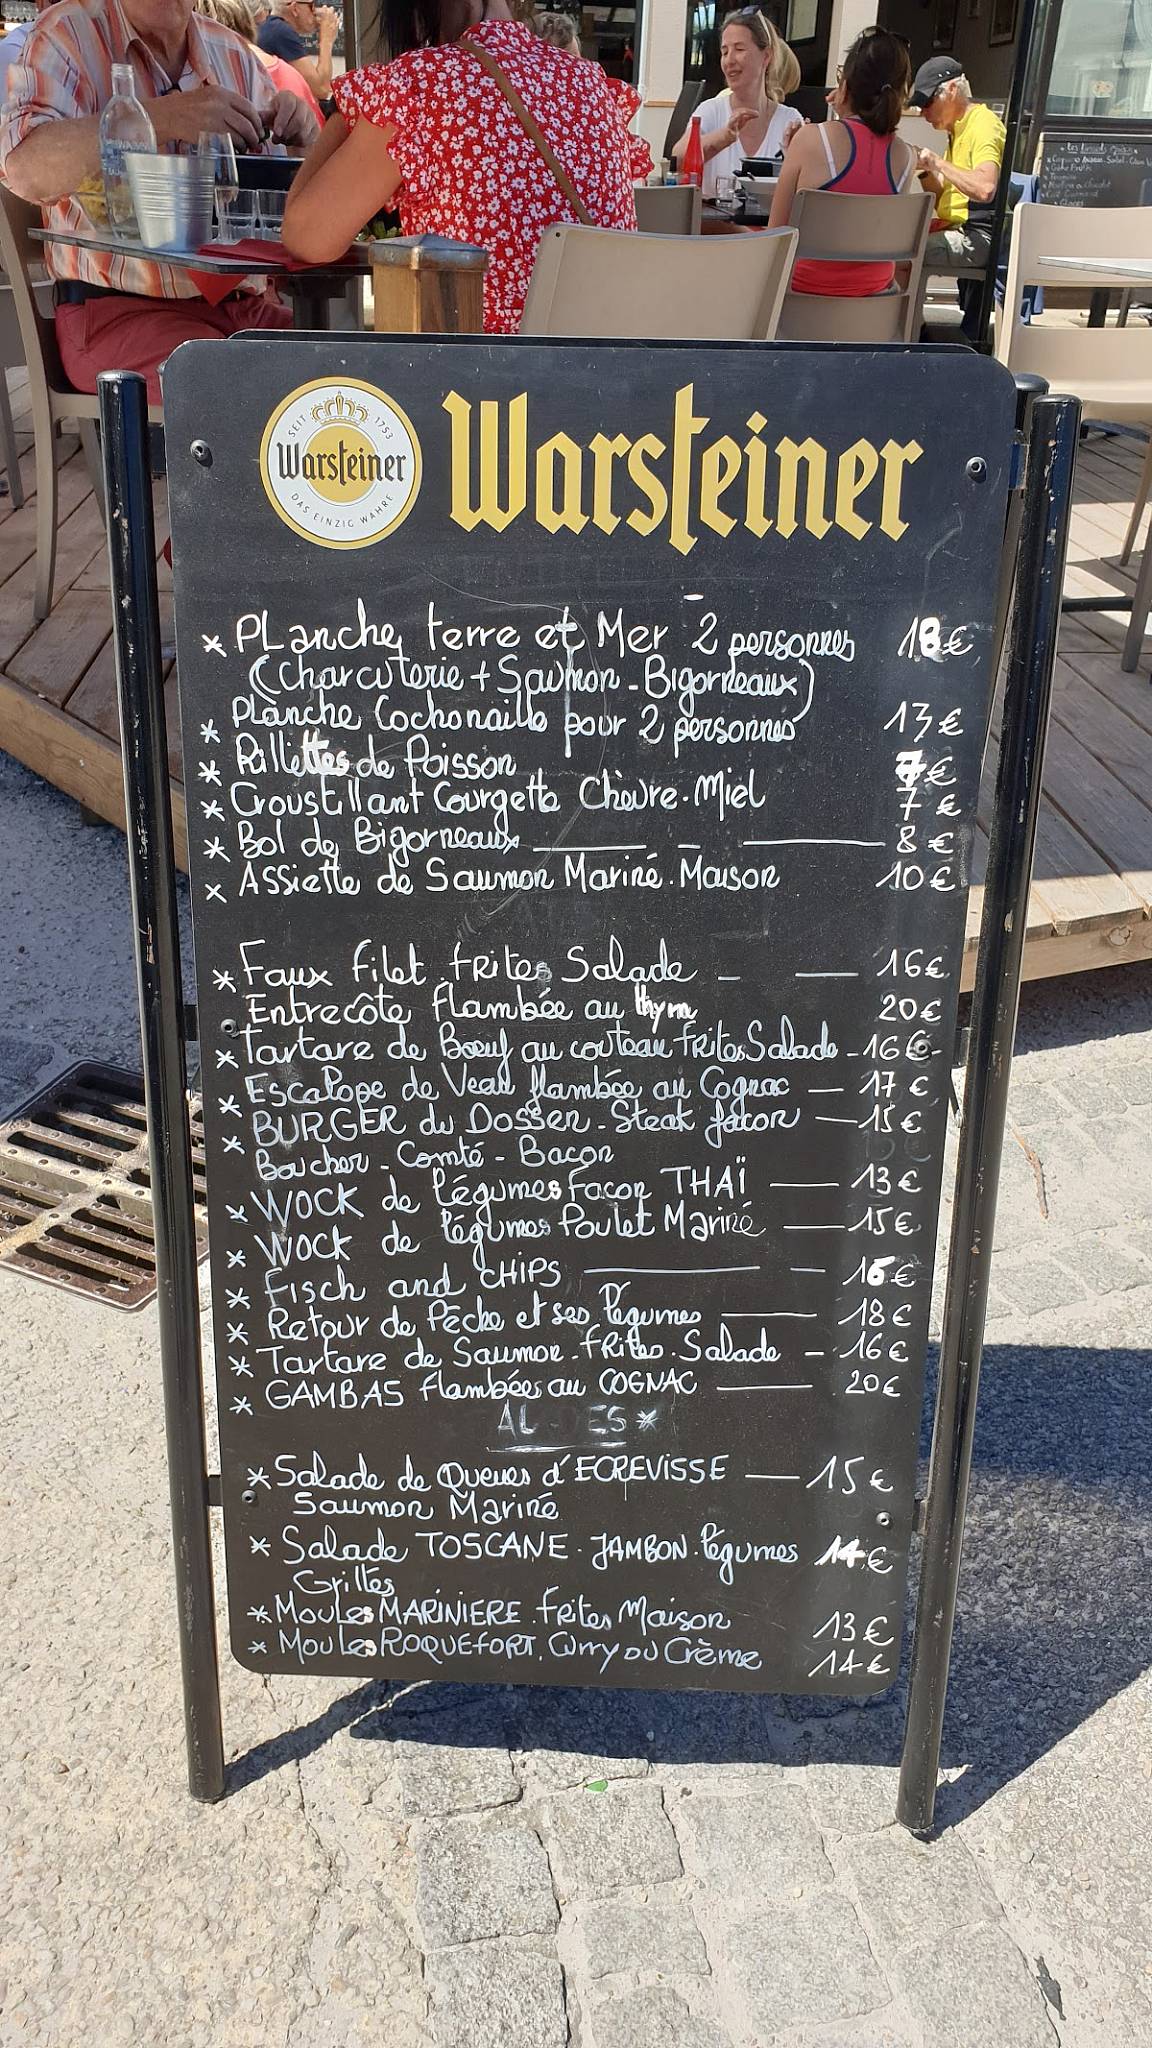 SEIT 1753
Warsteiner
DAS EINZIG WAHRE
Warsteiner
* PLanche terre et Mer 2 personnes 18€
(Charcuterie + Saumon - Bigorneaux)
* Planche Cochonaille pour 2 personnes 13€
* Rillettes de Poisson 7€
* Croustillant Courgette Chèvre. Miel 7€
* Bol de Bigorneaux 8€
* Assiette de Saumon Mariné. Maison 10€
* Faux filet. fRites Salade 16€
Entrecôte flambée au thym 20€
* Tartare de Bœuf au couteau fRites Salade - 16€
* Escalope de Veau flambée au Cognac 17€
* BURGER du DOSSEN - Steak façon 15€
Boucher - Comté - Bacon
* WOCK de légumes Façon THAÏ 13€
* WOCK de légumes Poulet Mariné 15€
* Fisch and CHIPS 16€
* Retour de Pêche et ses légumes 18€
* Tartare de Saumon - fRites. Salade - 16€
* GAMBAS flambées au COGNAC 20€
* Salade de Queues d'ECREVISSE 15€
Saumon Mariné
* Salade TOSCANE. JAMBON. légumes 14€
Grillés
* Moules MARINIERE. frites Maison 13€
* Moules ROQUEFORT. Curry OU Crème 14€